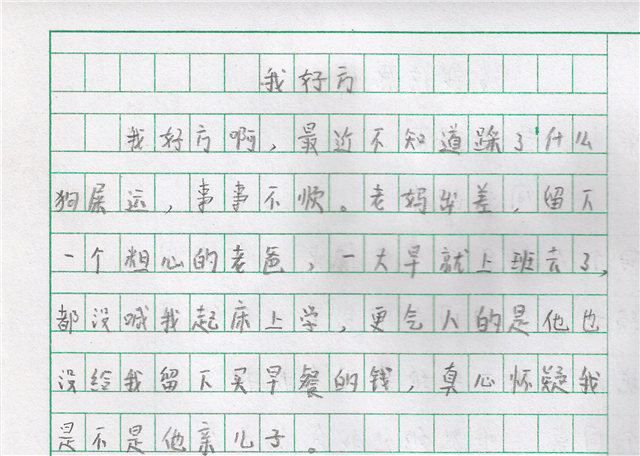 我好方
我好方啊，最近不知道踩了什么
狗屎运，事事不顺。老妈出差，留下
一个粗心的老爸，一大早就上班去了，
都没喊我起床上学，更气人的是他也
没给我留下买早餐的钱，真心怀疑我
是不是他亲儿子。